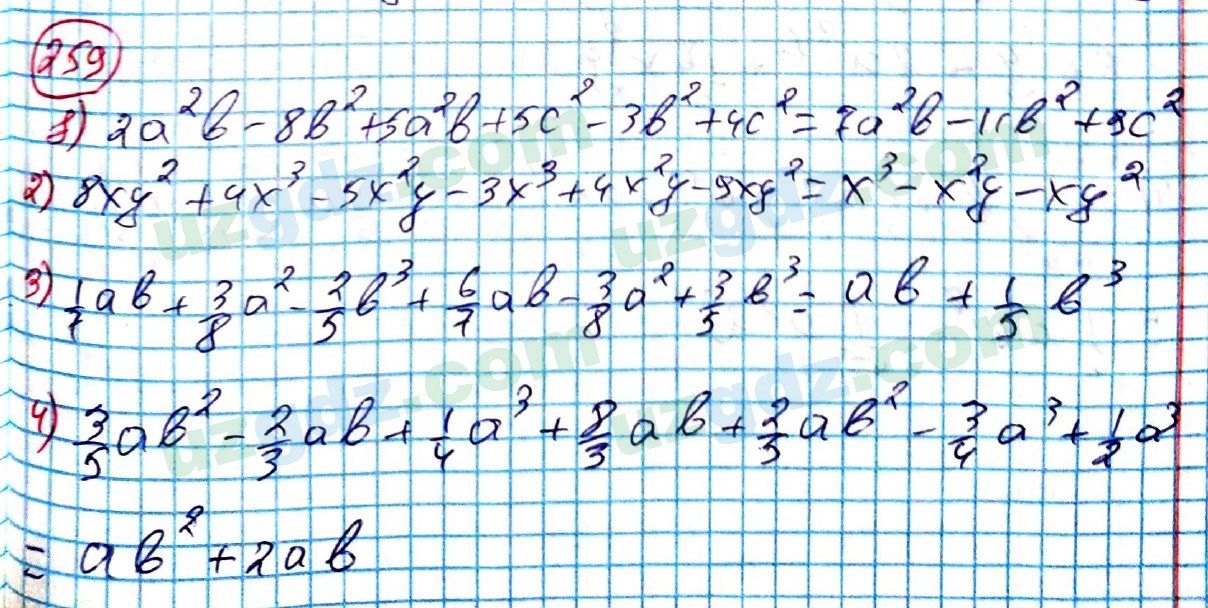 259
1) 2a²b - 8b² + 5a²b + 5c² - 3b² + 4c² = 7a²b - 11b² + 9c²
2) 8xy² + 4x³ - 5x²y - 3x³ + 4x²y - 9xy² = x³ - x²y - xy²
3) 1/7 ab + 3/8 a² - 2/5 b³ + 6/7 ab - 3/8 a² + 3/5 b³ = ab + 1/5 b³
4) 3/5 ab² - 2/3 ab + 1/4 a³ + 8/3 ab + 2/5 ab² - 3/4 a³ + 1/2 a³
= ab² + 2ab
uzgdz.com
uzgdz.com
uzgdz.com
uzgdz.com